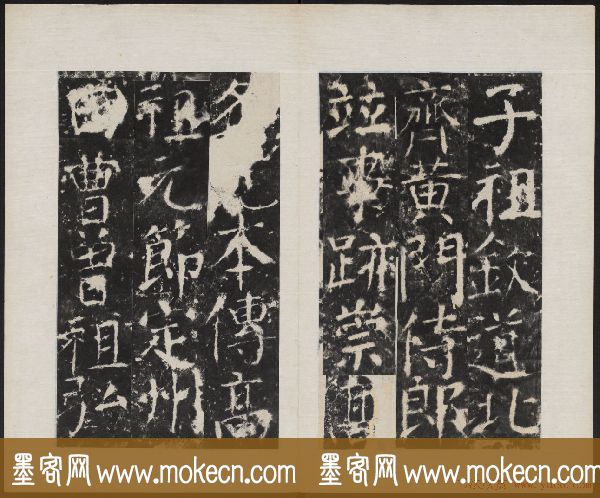 子祖欽道北
齊黃門侍郎
竝事跡崇
各本傳高
祖元節定州
田曹曾祖弘
墨客网 www.mokecn.com
墨客网 www.mokecn.com